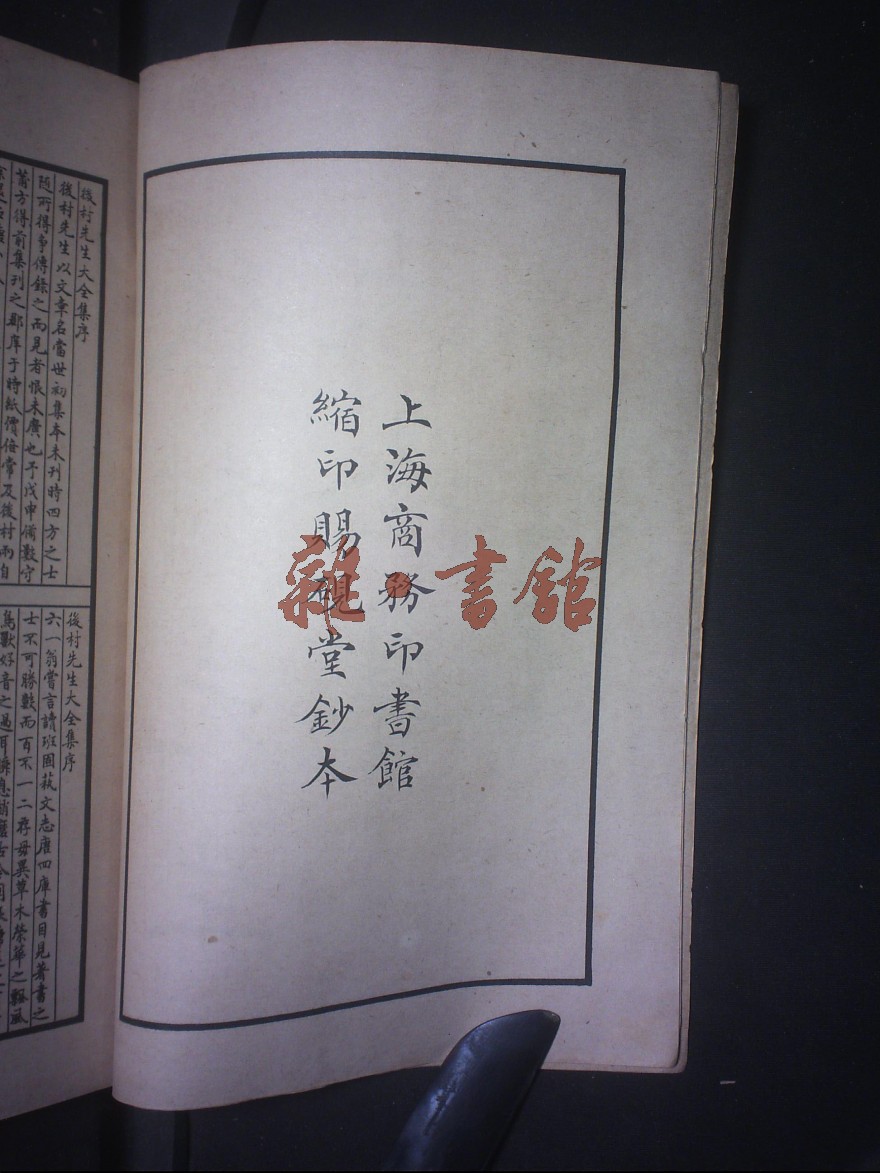 上海商務印書館
縮印賜硯堂鈔本
雜書館
後村先生大全集序
後村先生以文章名當世初集本未刊時四方之士
隨所得爭傳錄之而見者恨未廣也予戊申備數守
莆方得前集刊之郡庠于時紙價倍常及後村而自
後村先生大全集序
六一翁嘗言讀班固藝文志唐四庫書目見著書之
士不可勝數而百不一二存毋異草木榮華之飄風
鳥獸好音之過耳